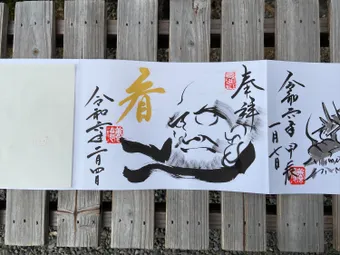 令和六年 甲辰
一月一日
奉拝
看
令和六年二月四日